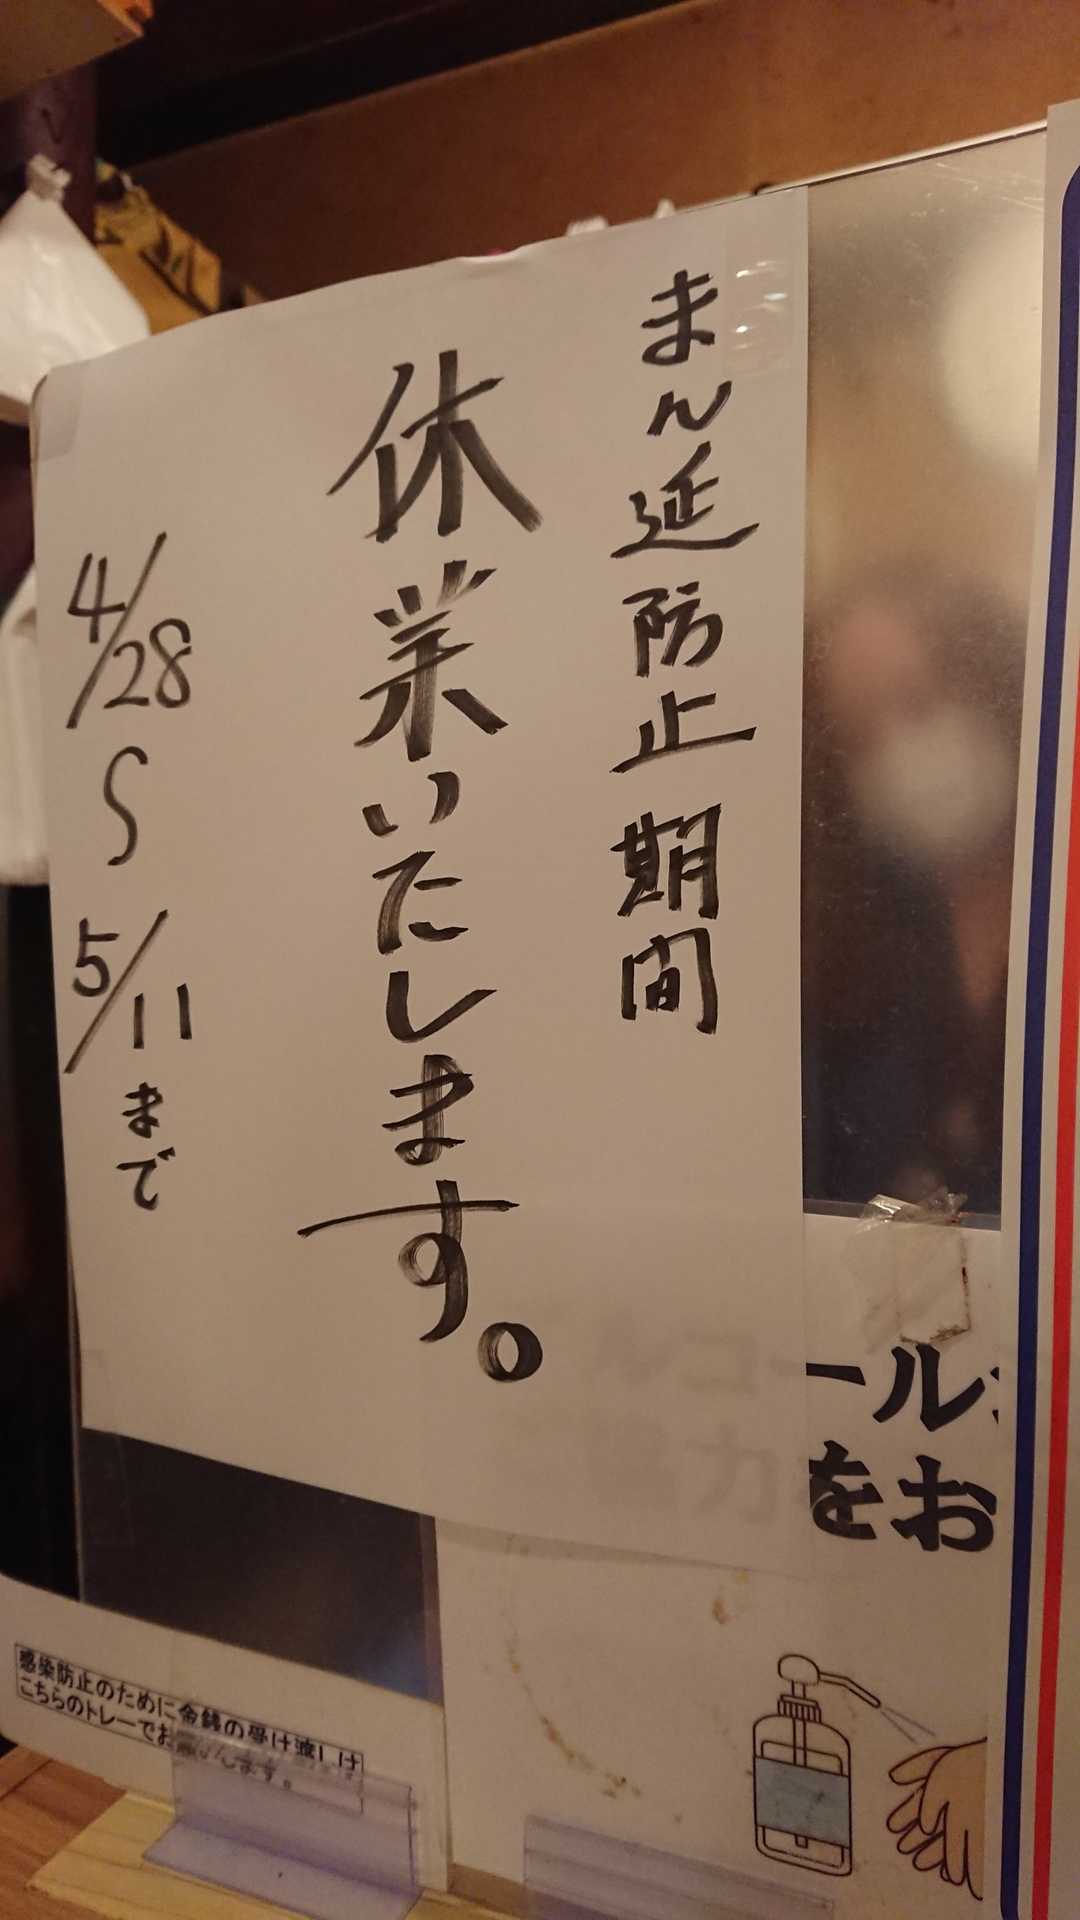 まん延防止期間
休業いたします。
4/28
〜
5/11まで
ールコ
をお
感染防止のために金銭の受け渡しは
こちらのトレーでお願いします。